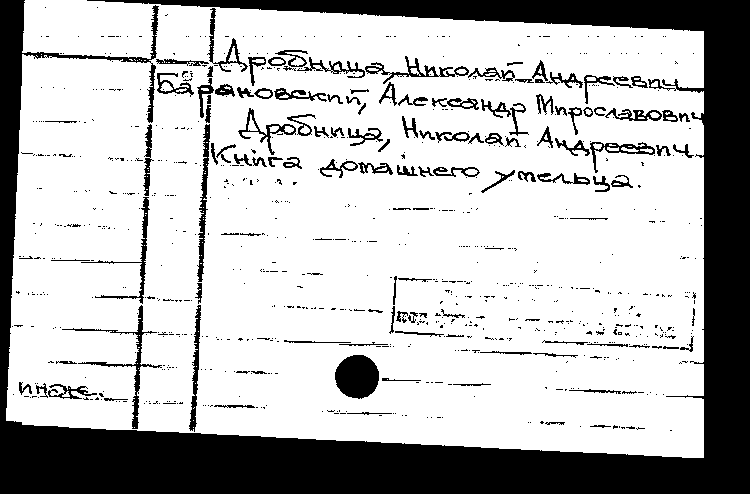 Дробница, Николай Андреевич
Барановский, Александр Мирославович
Дробница, Николай Андреевич
Книга домашнего умельца.
инж.